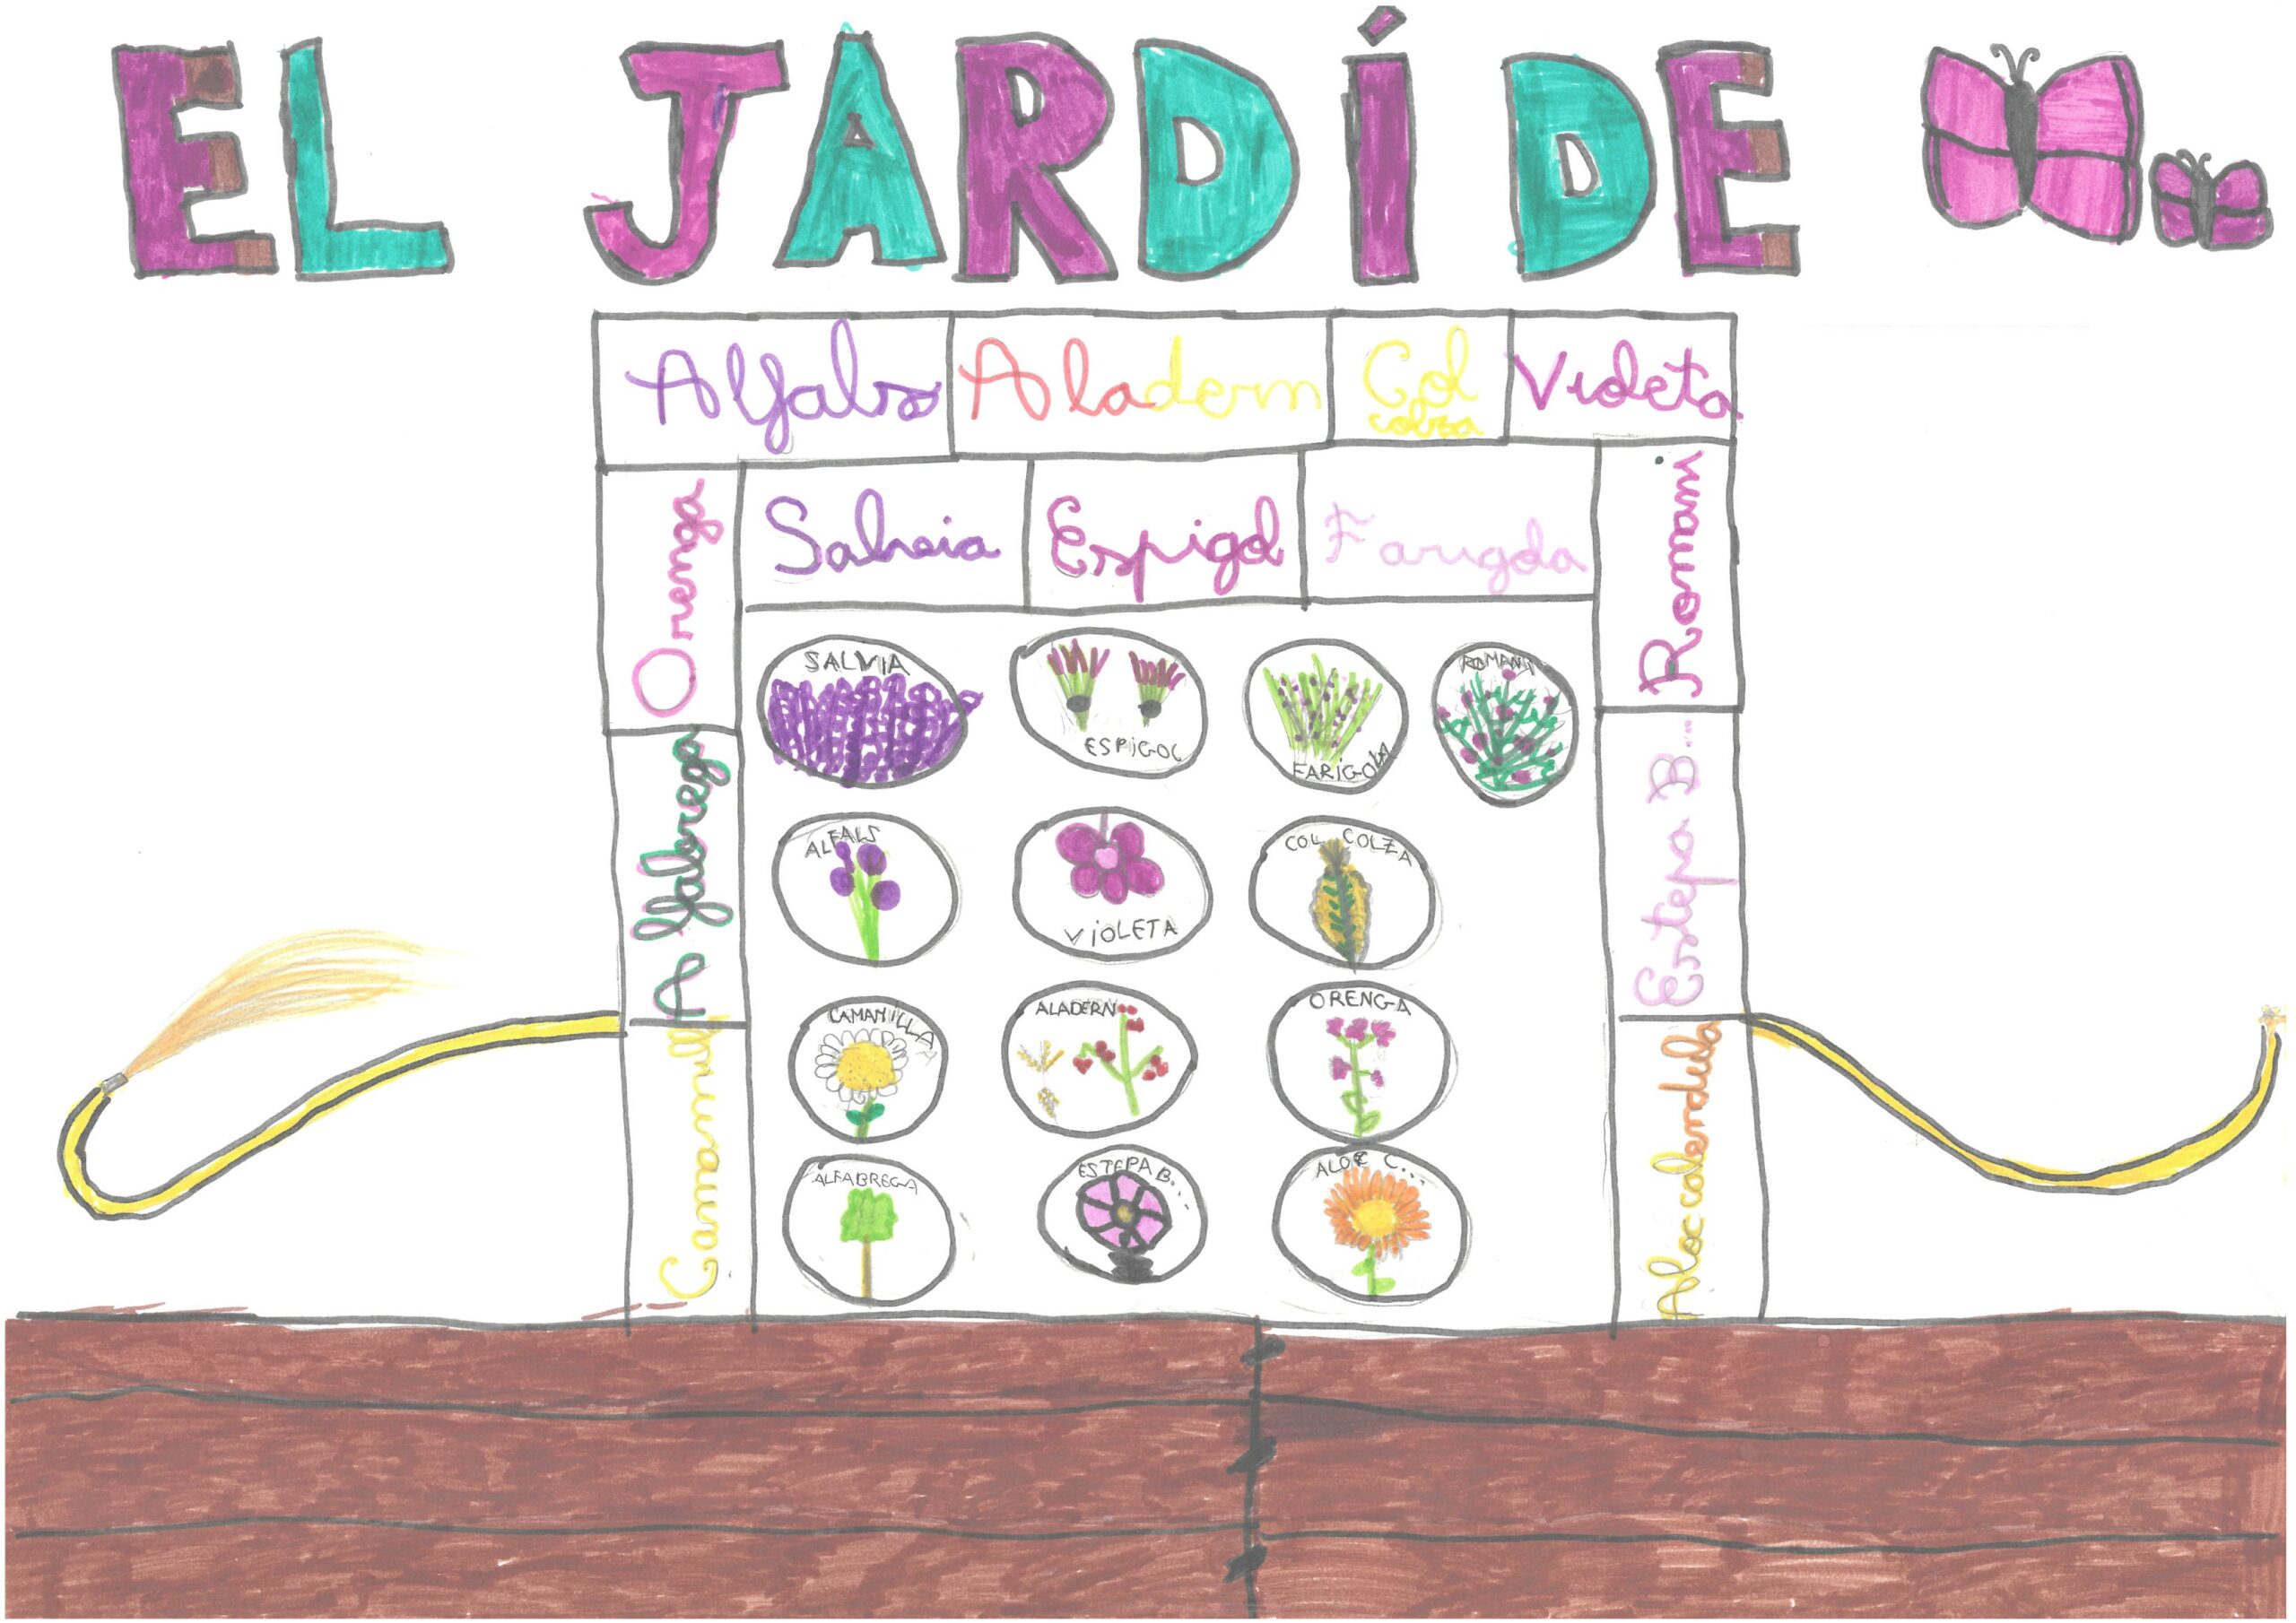 EL JARDÍ DE
Alfals
Aladern
Col
colza
Violeta
Orenga
Salvia
Espigol
Farigola
Romani
Alfabrega
Estepa B...
Camamill
SALVIA
ESPIGOL
FARIGOLA
ROMANI
ALFALS
VIOLETA
COL COLZA
CAMAMILLA
ALADERN
ORENGA
ALFABREGA
ESTEPA B....
ALOE C...